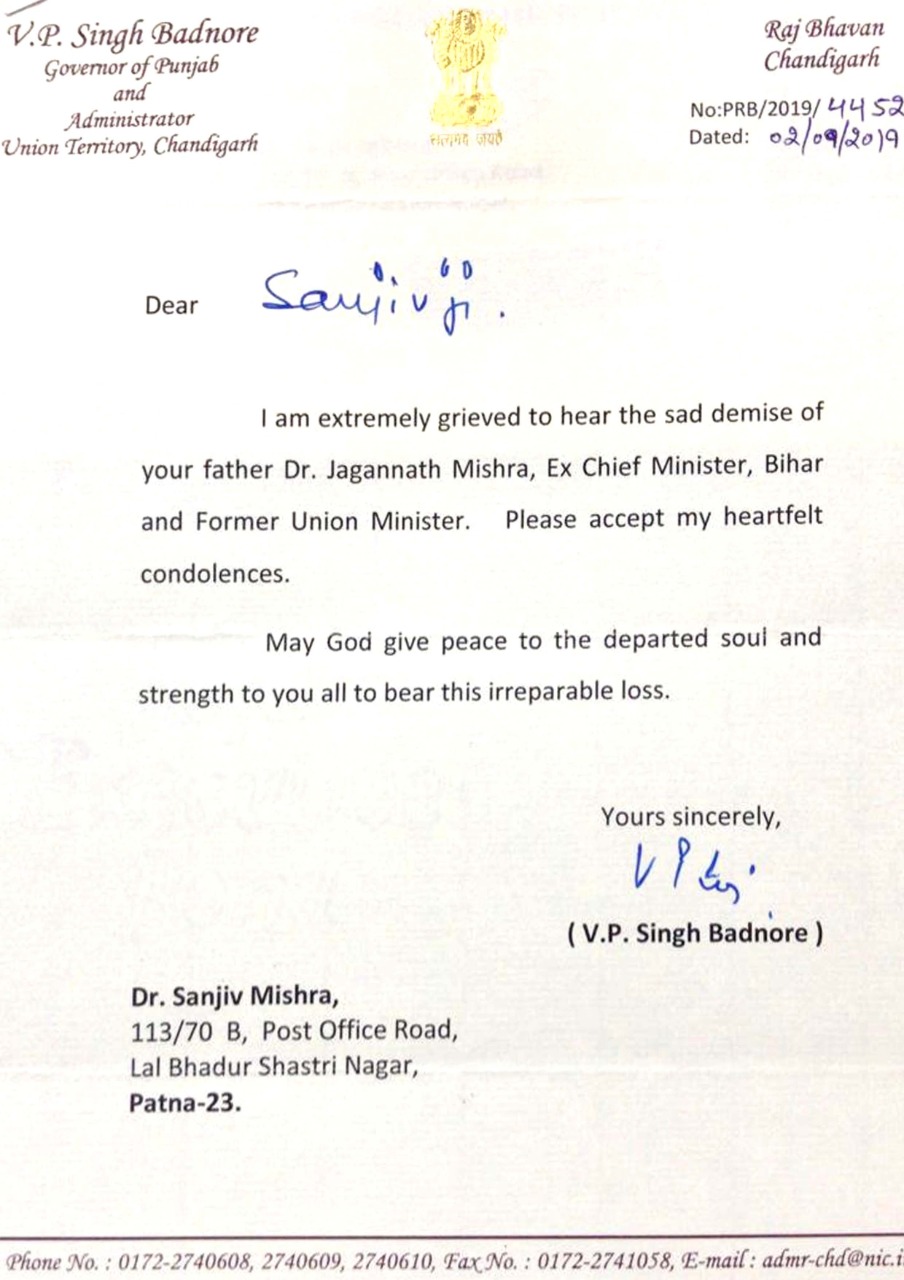 V.P. Singh Badnore
Governor of Punjab
and
Administrator
Union Territory, Chandigarh
सत्यमेव जयते
Raj Bhavan
Chandigarh
No:PRB/2019/ 4452
Dated: 02/09/2019
Dear Sanjiv ji.
I am extremely grieved to hear the sad demise of
your father Dr. Jagannath Mishra, Ex Chief Minister, Bihar
and Former Union Minister. Please accept my heartfelt
condolences.
May God give peace to the departed soul and
strength to you all to bear this irreparable loss.
Yours sincerely,
( V.P. Singh Badnore )
Dr. Sanjiv Mishra,
113/70 B, Post Office Road,
Lal Bhadur Shastri Nagar,
Patna-23.
Phone No. : 0172-2740608, 2740609, 2740610, Fax No. : 0172-2741058, E-mail : admr-chd@nic.i